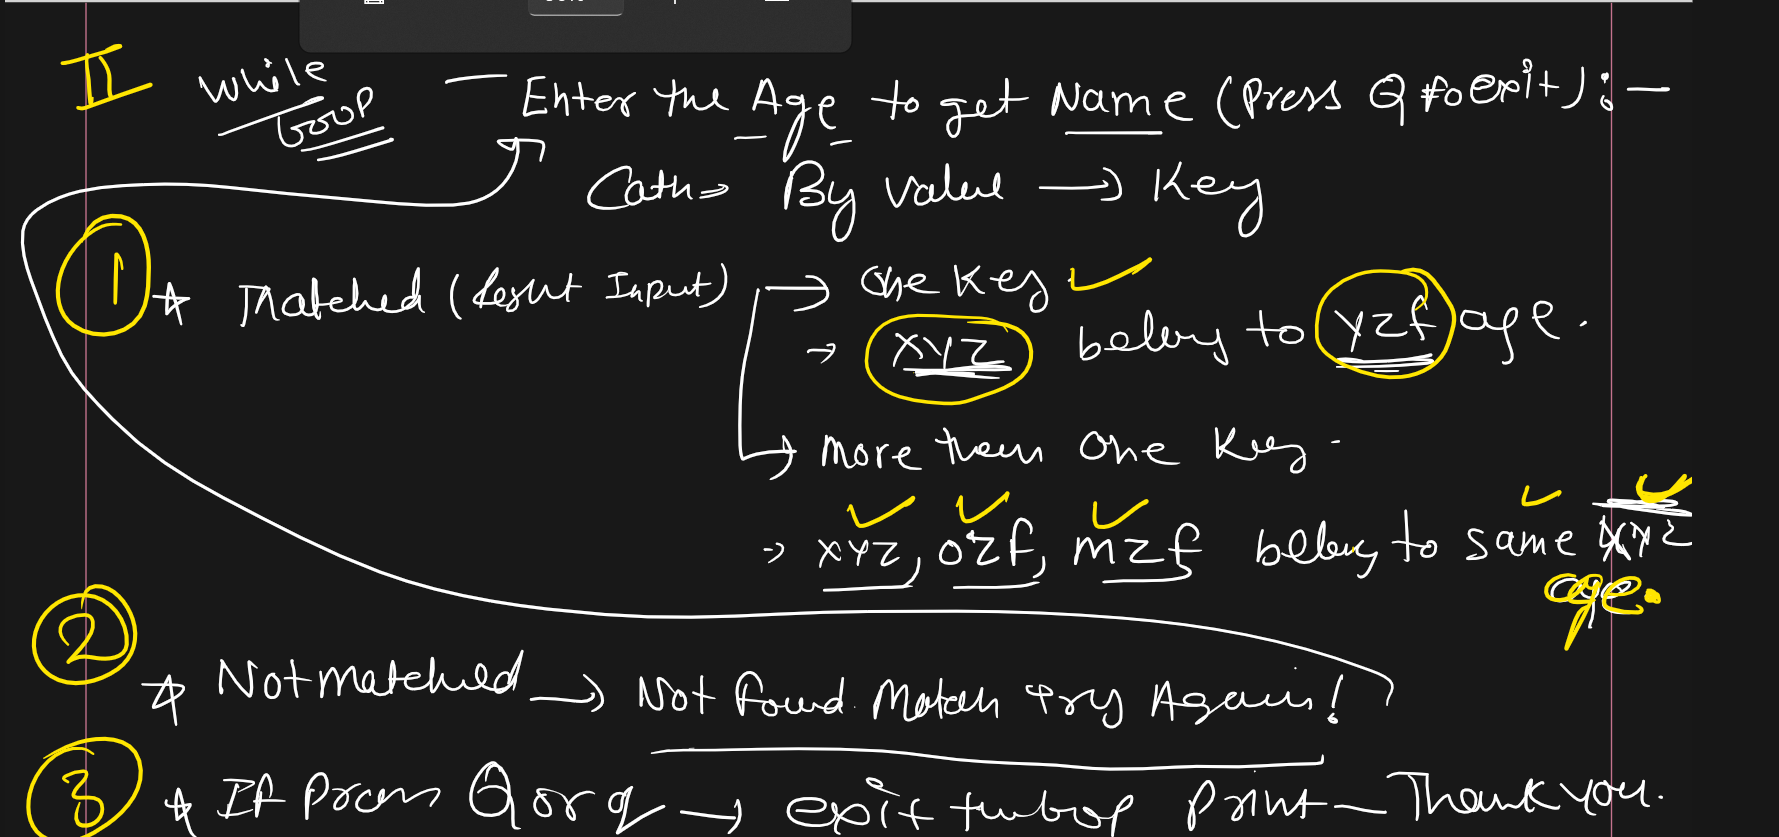 II while loop — Enter the Age to get Name (Press Q to exit) :-
By value → Key
1 * Matched ( Input) → One Key
→ xyz belong to yzf age.
→ more than one key.
→ xyz, ozf, mzf belong to same xyz
age.
2 * Not matched → Not Found Match Try Again!
3 * If Press Q or q → exit the loop Print - Thank you.